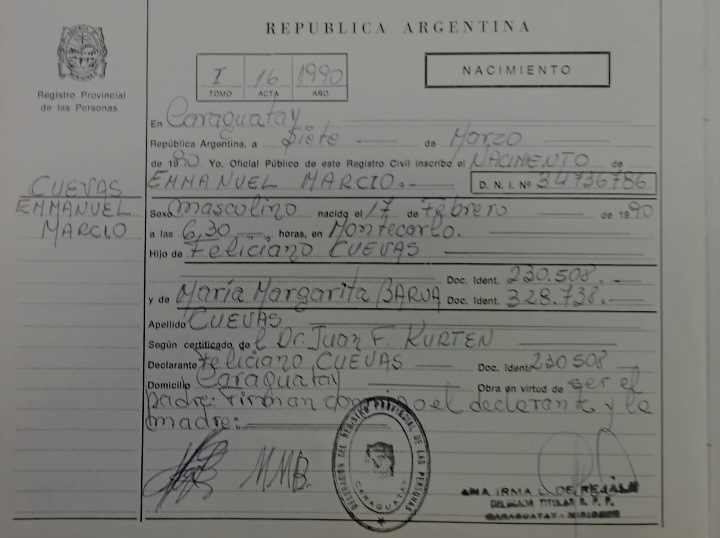 REPUBLICA ARGENTINA
Registro Provincial
de las Personas
I 16 1990
TOMO ACTA AÑO
NACIMIENTO
En Caraguatay
República Argentina, a Siete de Marzo
de 1990 Yo, Oficial Público de este Registro Civil inscribo el NACIMIENTO de
EMMANUEL MARCIO.- D. N. I. Nº 34736786
CUEVAS
EMMANUEL
MARCIO
Sexo Masculino nacido el 17 de Febrero de 1990
a las 6,30 horas, en Montecarlo.
Hijo de Feliciano CUEVAS
Doc. Ident. 230.508.-
y de María Margarita BARUA Doc. Ident. 328.738.-
Apellido CUEVAS
Según certificado del Dr. Juan F. KURTEN
Declarante Feliciano CUEVAS Doc. Ident. 230508
Domicilio Caraguatay Obra en virtud de ser el
padre: firman conmigo el declarante y la
madre:
DELEGACION DEL REGISTRO PROVINCIAL DE LAS PERSONAS
CARAGUATAY
MMB.
ANA IRMA L. DE
TITULAR R. P. P.
CARAGUATAY - MISIONES